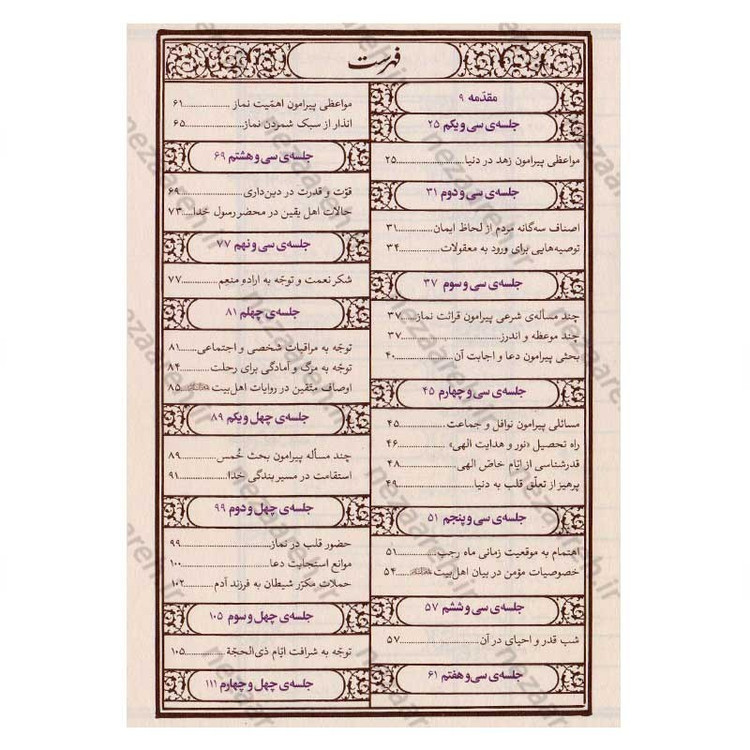 فهرست
مقدّمه ۹
جلسه‌ی سی و یکم ۲۵
مواعظی پیرامون زهد در دنیا...............۲۵
جلسه‌ی سی و دوم ۳۱
اصناف سه‌گانه مردم از لحاظ ایمان...........۳۱
توصیه‌هایی برای ورود به معقولات...........۳۴
جلسه‌ی سی و سوم ۳۷
چند مسأله‌ی شرعی پیرامون قرائت نماز......۳۷
چند موعظه و اندرز.....................۳۷
بحثی پیرامون دعا و اجابت آن..............۴۰
جلسه‌ی سی و چهارم ۴۵
مسائلی پیرامون نوافل و جماعت............۴۵
راه تحصیل «نور و هدایت الهی»............۴۶
قدرشناسی از ایّام خاصّ الهی..............۴۸
پرهیز از تعلّق قلب به دنیا................۴۹
جلسه‌ی سی و پنجم ۵۱
اهتمام به موقعیت زمانی ماه رجب..........۵۱
خصوصیات مؤمن در بیان اهل‌بیت.......۵۴
جلسه‌ی سی و ششم ۵۷
شب قدر و احیای در آن..................۵۷
جلسه‌ی سی و هفتم ۶۱
مواعظی پیرامون اهمّیت نماز..............۶۱
انذار از سبک شمردن نماز................۶۵
جلسه‌ی سی و هشتم ۶۹
قوّت و قدرت در دین‌داری................۶۹
حالات اهل یقین در محضر رسول خدا......۷۳
جلسه‌ی سی و نهم ۷۷
شکر نعمت و توجّه به اراده منعِم...........۷۷
جلسه‌ی چهلم ۸۱
توجّه به مراقبات شخصی و اجتماعی........۸۱
توجّه به مرگ و آمادگی برای رحلت.........۸۴
اوصاف متّقین در روایات اهل‌بیت.......۸۵
جلسه‌ی چهل و یکم ۸۹
چند مسأله پیرامون بحث خُمس............۸۹
استقامت در مسیر بندگی خدا..............۹۱
جلسه‌ی چهل و دوم ۹۹
حضور قلب در نماز.....................۹۹
موانع استجابت دعا.....................۱۰۰
حملات مکرّر شیطان به فرزند آدم..........۱۰۲
جلسه‌ی چهل و سوم ۱۰۵
توجّه به شرافت ایّام ذی‌الحجّة.............۱۰۵
جلسه‌ی چهل و چهارم ۱۱۱
nezaareh.ir